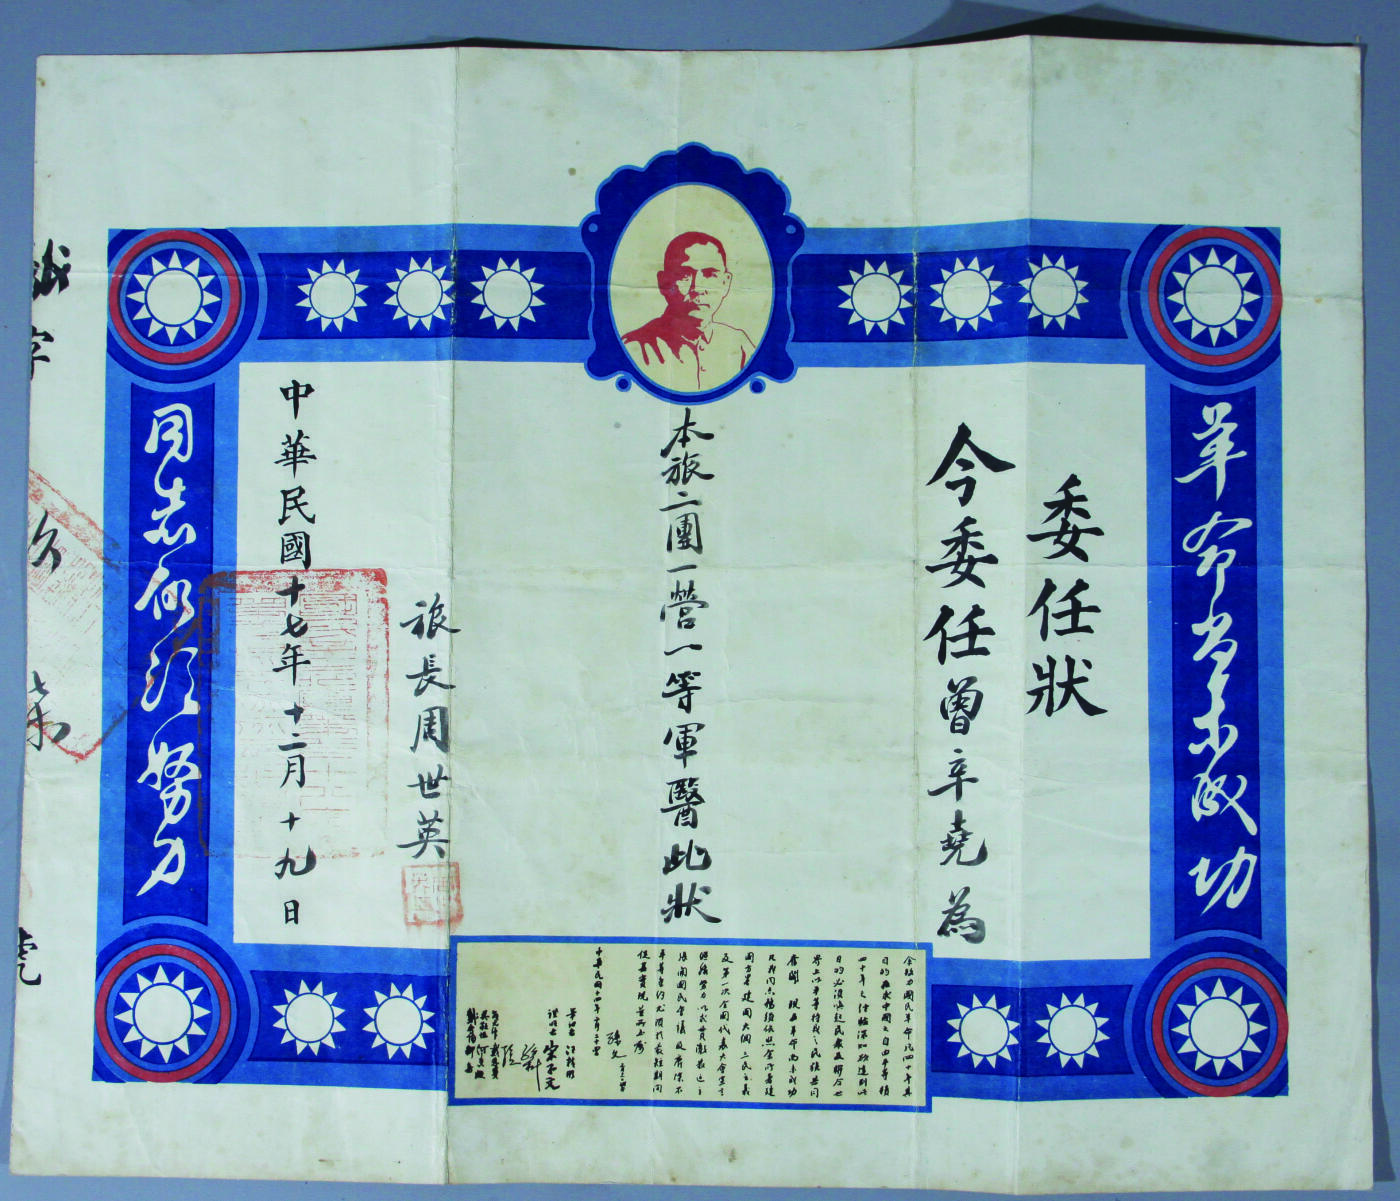 革命尚未成功
委任狀
今委任曾辛堯為
本旅二團一營一等軍醫此狀
旅長周世英
中華民國十七年十二月十九日
同志仍須努力
余致力國民革命凡四十年其
目的在求中國之自由平等積
四十年之經驗深知欲達到此
目的必須喚起民衆及聯合世
界上以平等待我之民族共同
奮鬥 現在革命尚未成功
凡我同志務須依照余所著建
國方畧建國大綱三民主義
及第一次全國代表大會宣言
繼續努力以求貫徹最近主
張開國民會議及廢除不
平等條約尤須於最短期間
促其實現是所至囑
孫文
中華民國十四年二月二十四日
筆記者 汪精衛
證明者 宋子文
孫科
字